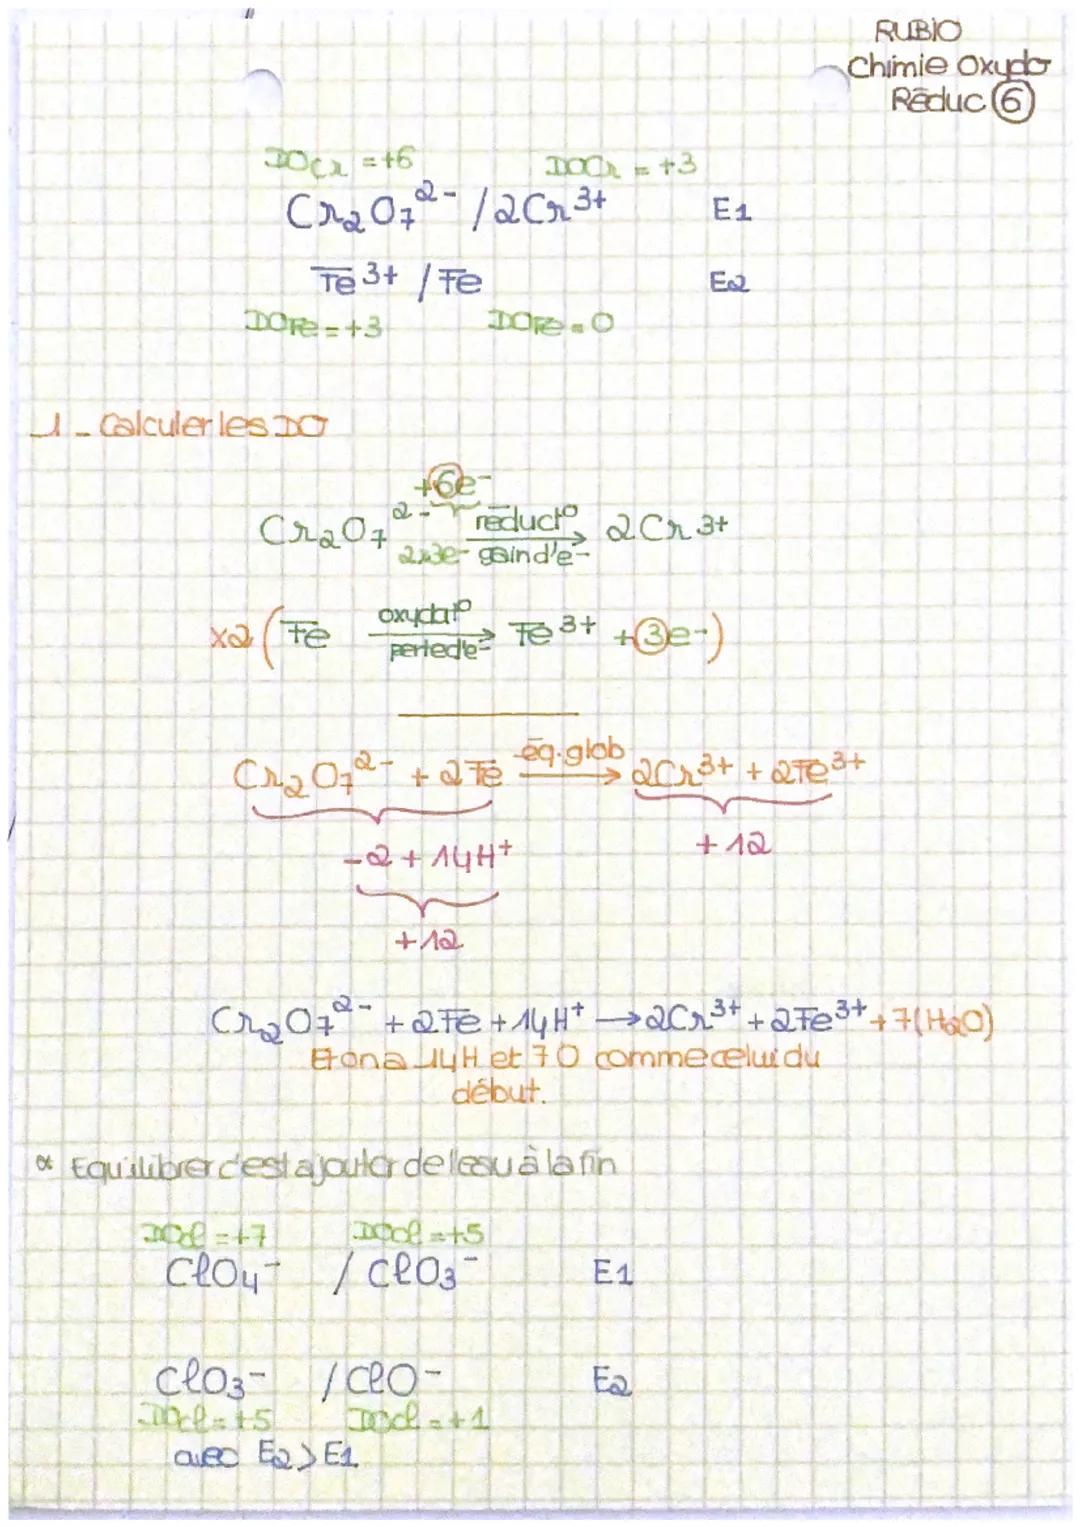 RUBIO
Chimie Oxydo
Réduc 6
DOCr = +6 DOCr = +3
Cr₂O₇²⁻ / 2Cr³⁺ E1
Fe³⁺ / Fe E2
DOFe = +3 DOFe = 0
1 - Calculer les DO
+6e⁻
Cr₂O₇²⁻ réductº 2Cr³⁺
2x3e⁻ gain d'e⁻
x2 ( Fe oxydatº Fe³⁺ + 3e⁻ )
perte d'e⁻
Cr₂O₇²⁻ + 2Fe éq.glob → 2Cr³⁺ + 2Fe³⁺
-2 + 14H⁺ + 12
+12
Cr₂O₇²⁻ + 2Fe + 14H⁺ → 2Cr³⁺ + 2Fe³⁺ + 7(H₂O)
Et on a 14H et 7O comme celui du
début.
* Equilibrer c'est ajouter de l'eau à la fin
DOCl = +7 DOCl = +5
ClO₄⁻ / ClO₃⁻ E1
ClO₃⁻ / ClO⁻ E2
DOCl = +5 DOCl = +1
avec E2 > E1